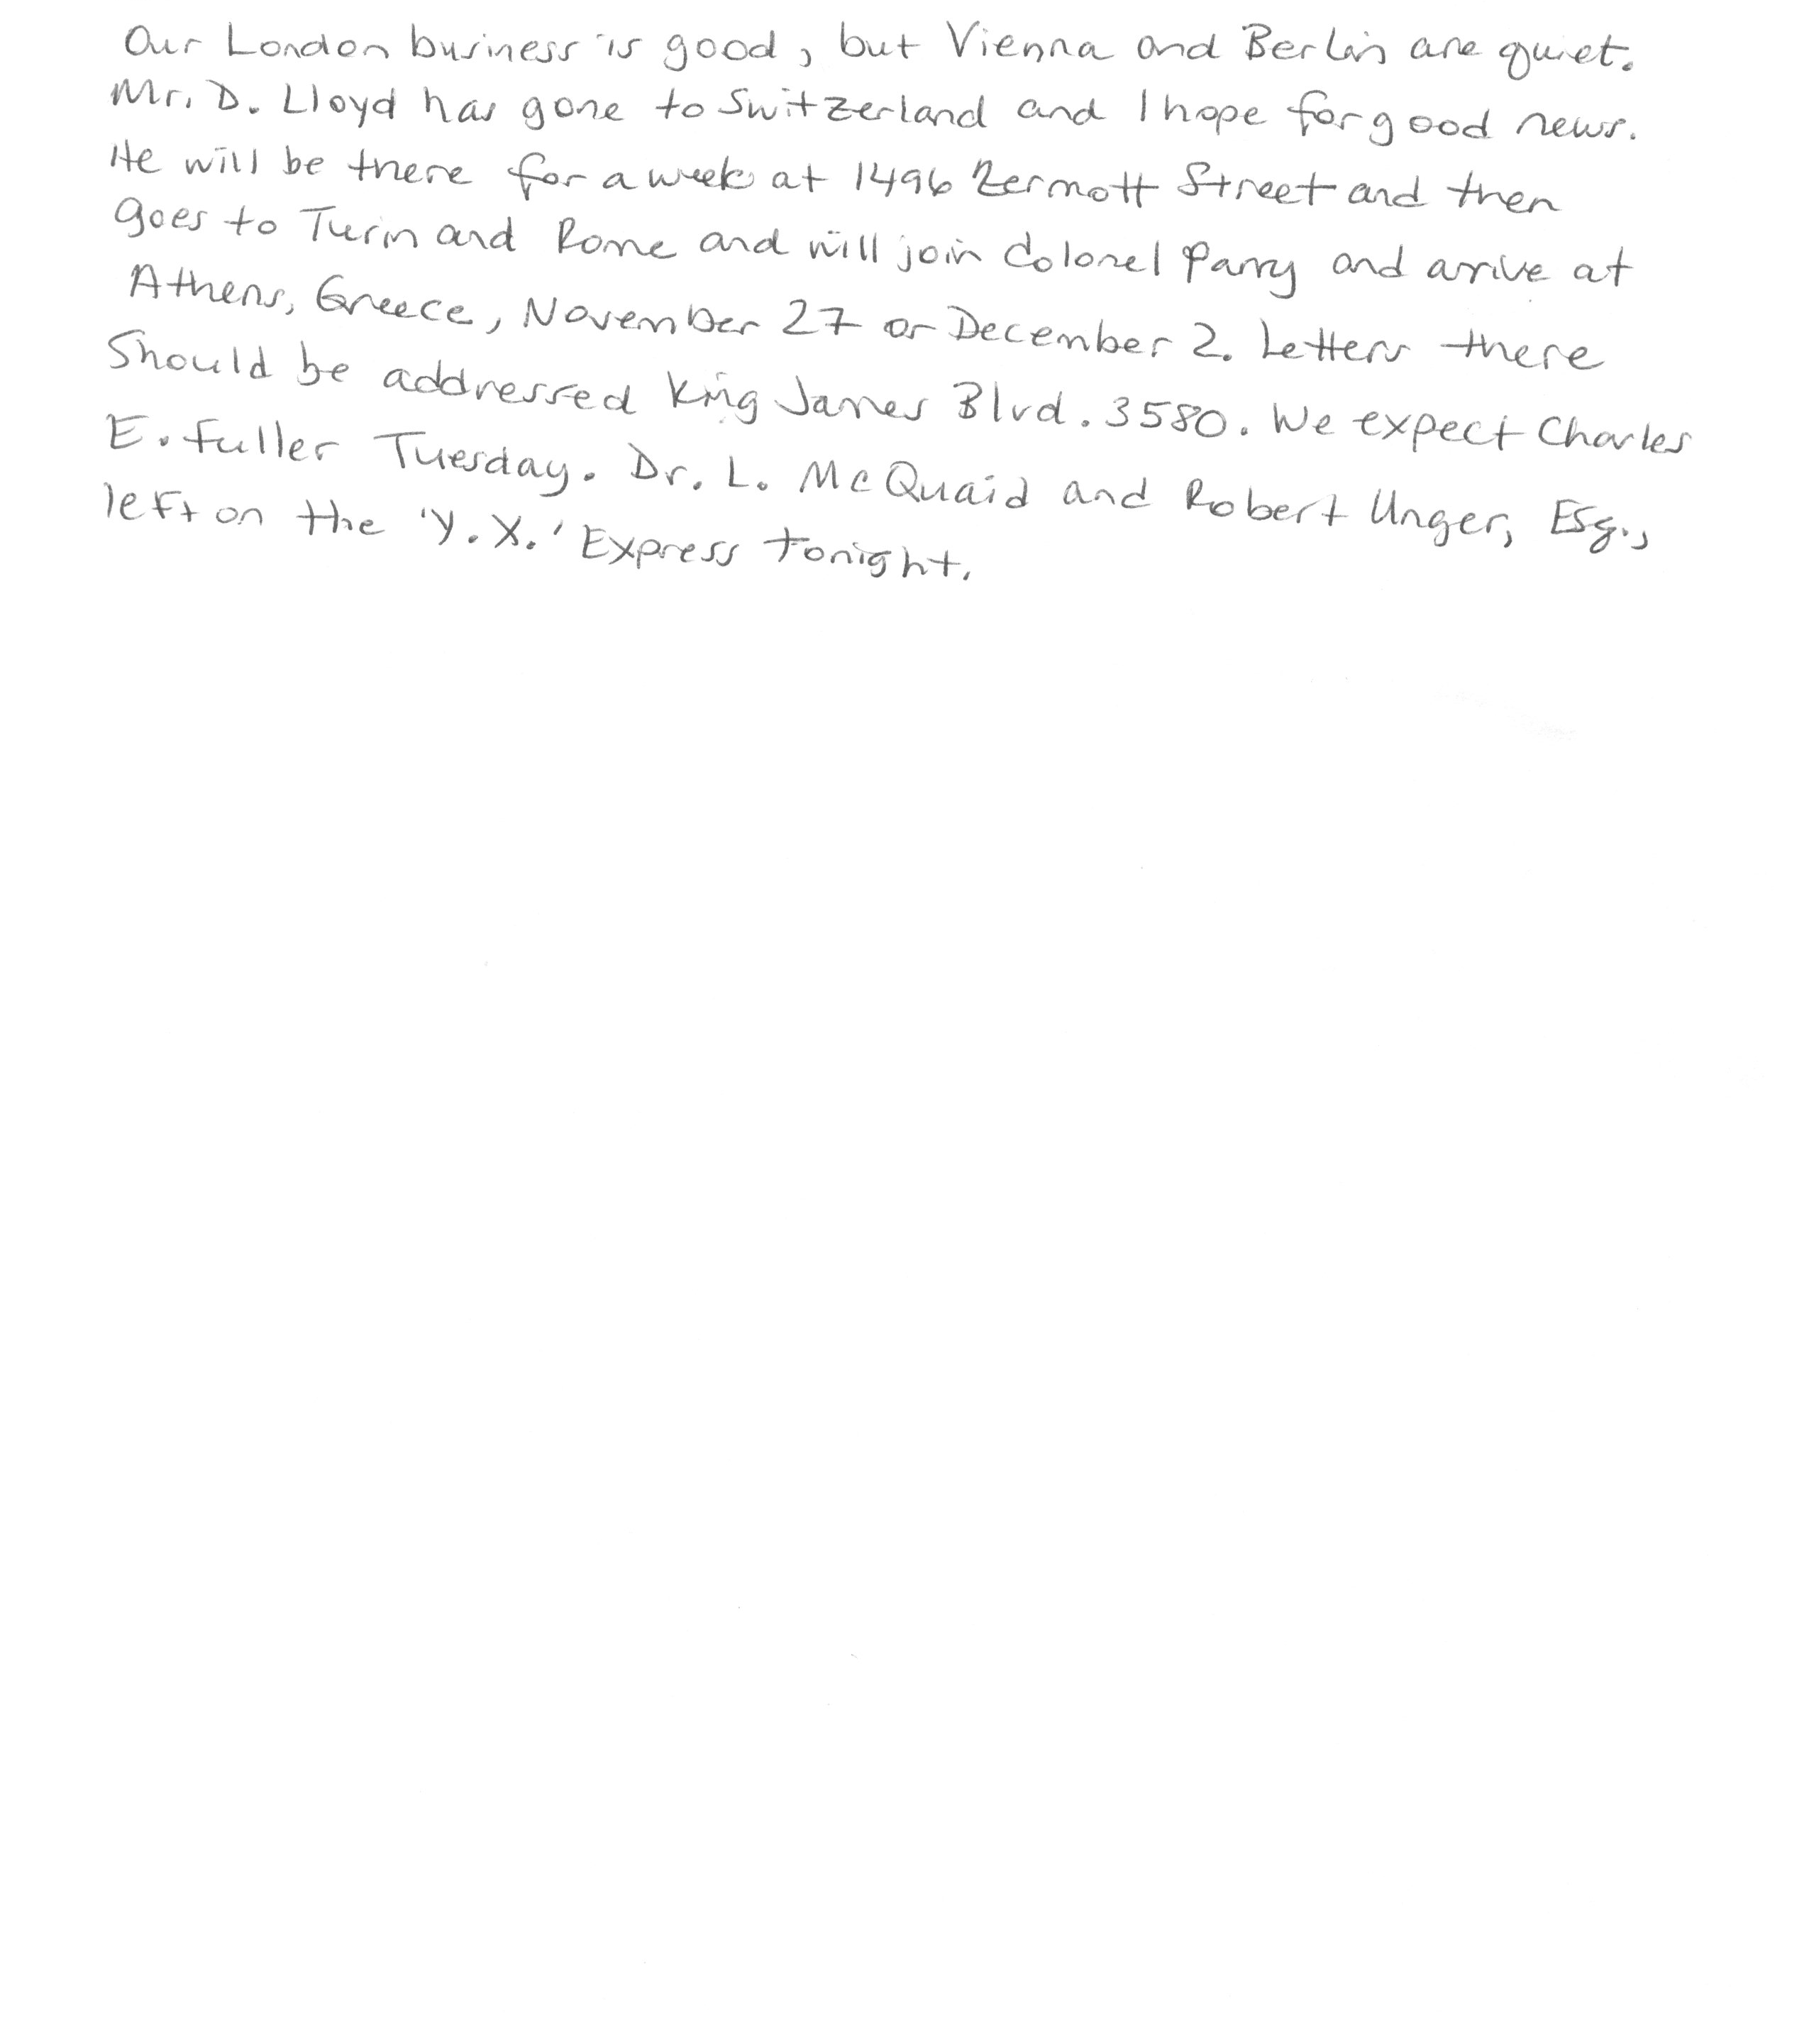 Our London business is good, but Vienna and Berlin are quiet.
Mr. D. Lloyd has gone to Switzerland and I hope for good news.
He will be there for a week at 1496 Zermott Street and then
goes to Turin and Rome and will join Colonel Parry and arrive at
Athens, Greece, November 27 or December 2. Letters there
Should be addressed King James Blvd. 3580. We expect Charles
E. Fuller Tuesday. Dr. L. McQuaid and Robert Unger, Esq.,
left on the 'Y.X.' Express tonight.